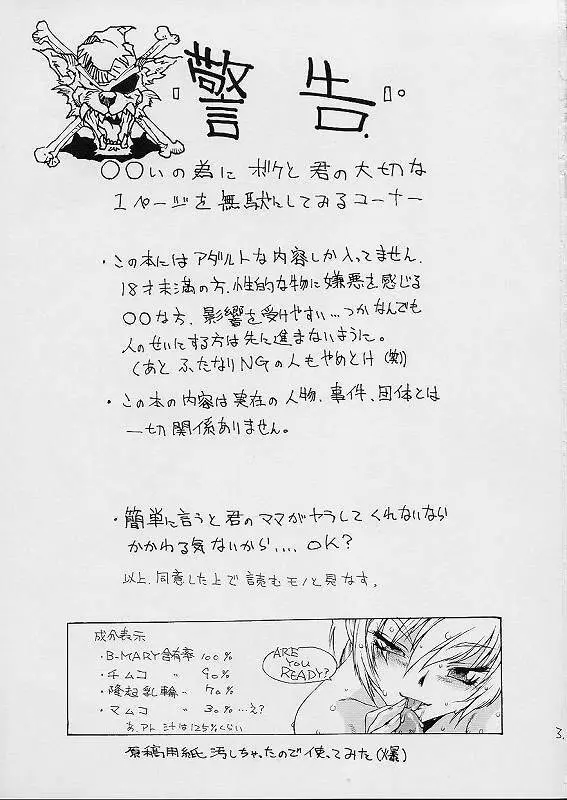 警告.
〇〇いの為にボケと君の大切な
1ページを無駄にしてみるコーナー
・この本にはアダルトな内容しか入ってません.
18才未満の方、性的な物に嫌悪を感じる
〇〇な方、影響を受けやすい…つかなんでも
人のせいにする方は先に進まないように。
(あと ふたなりNGの人もやめとけ(笑)
・この本の内容は実在の人物、事件、団体とは
一切関係ありません。
・簡単に言うと君のママがヤラしてくれないなら
かかわる気ないから.... OK?
以上、同意した上で読むモノと見なす。
成分表示
・B-MARY含有率 100%
・チムコ 〃 90%
・隆起乳輪 〃 70%
・マムコ 〃 30%…え?
あ、アト 汁は125%くらい
ARE YOU READY?
原稿用紙汚しちゃったので使ってみた(爆)
3.